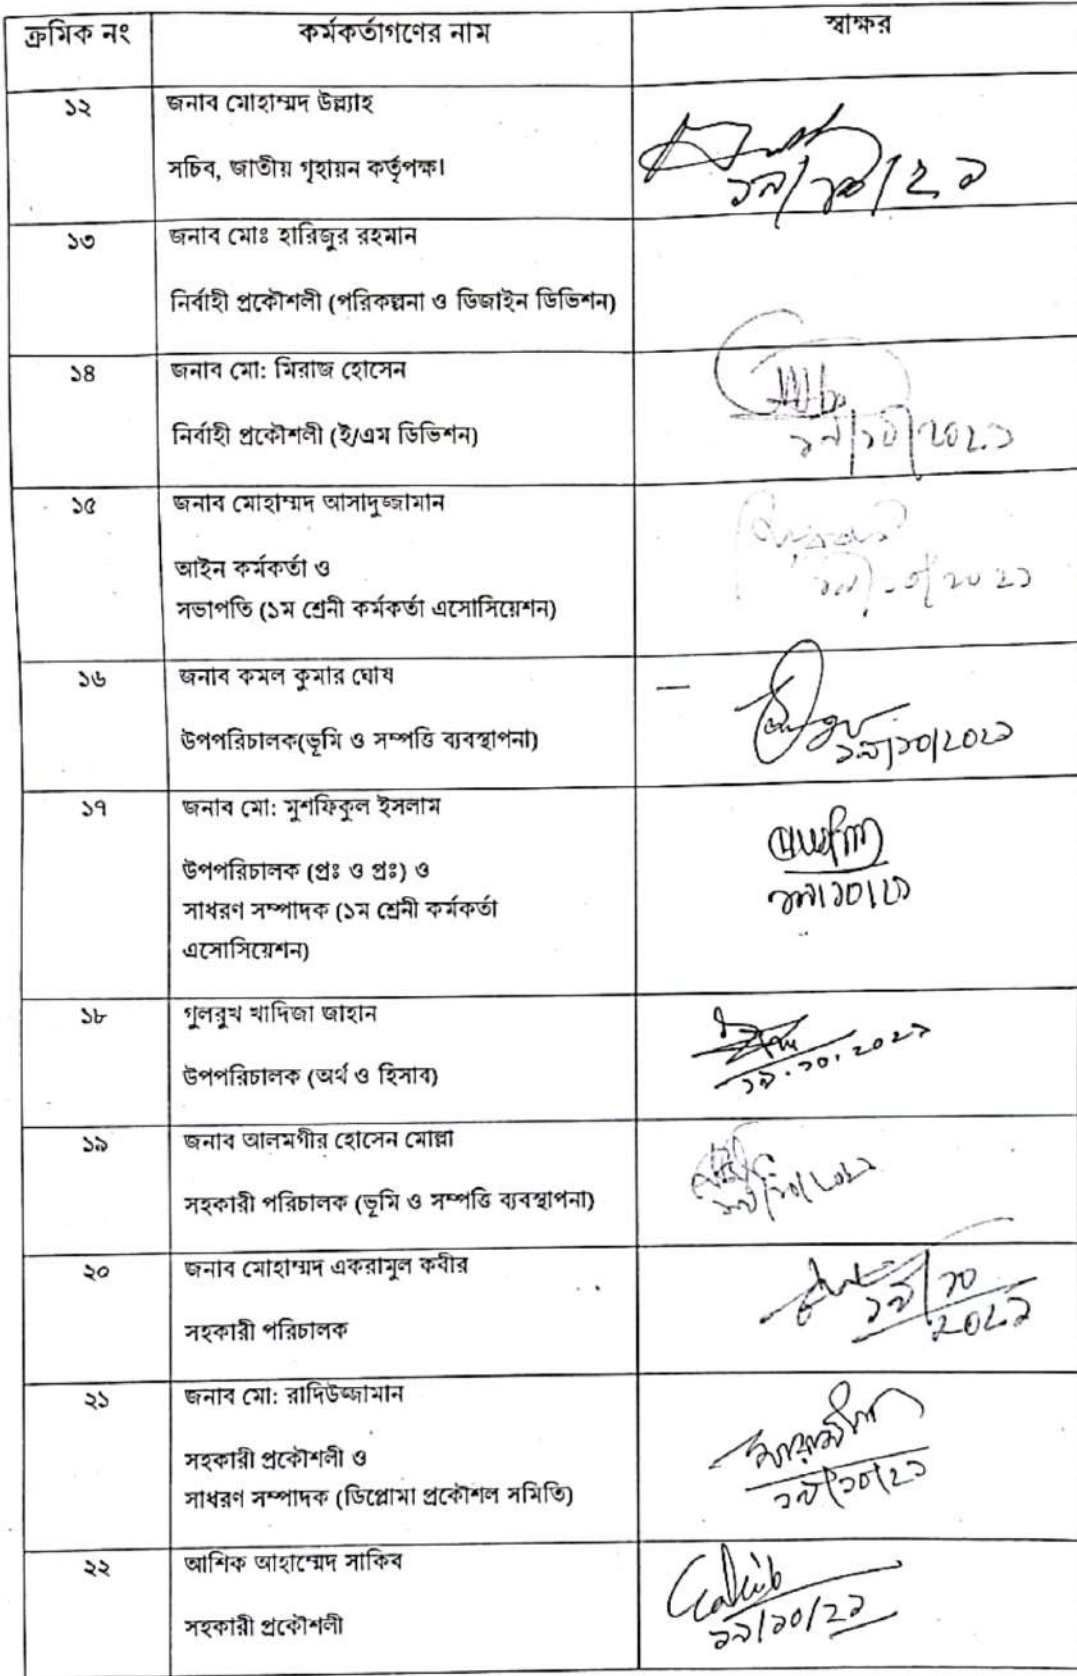 ক্রমিক নং কর্মকর্তাগণের নাম স্বাক্ষর
১২ জনাব মোহাম্মদ উল্ল্যাহ
সচিব, জাতীয় গৃহায়ন কর্তৃপক্ষ।
১৯/১০/২১
১৩ জনাব মোঃ হারিজুর রহমান
নির্বাহী প্রকৌশলী (পরিকল্পনা ও ডিজাইন ডিভিশন)
১৪ জনাব মো: মিরাজ হোসেন
নির্বাহী প্রকৌশলী (ই/এম ডিভিশন)
১৯/১০/২০২১
১৫ জনাব মোহাম্মদ আসাদুজ্জামান
আইন কর্মকর্তা ও
সভাপতি (১ম শ্রেনী কর্মকর্তা এসোসিয়েশন)
১৯/১০/২০২১
১৬ জনাব কমল কুমার ঘোষ
উপপরিচালক(ভূমি ও সম্পত্তি ব্যবস্থাপনা)
১৯/১০/২০২১
১৭ জনাব মো: মুশফিকুল ইসলাম
উপপরিচালক (প্রঃ ও প্রঃ) ও
সাধরণ সম্পাদক (১ম শ্রেনী কর্মকর্তা
এসোসিয়েশন)
১৯/১০/২১
১৮ গুলরুখ খাদিজা জাহান
উপপরিচালক (অর্থ ও হিসাব)
১৯.১০.২০২১
১৯ জনাব আলমগীর হোসেন মোল্লা
সহকারী পরিচালক (ভূমি ও সম্পত্তি ব্যবস্থাপনা)
১৯/১০/২০২১
২০ জনাব মোহাম্মদ একরামুল কবীর
সহকারী পরিচালক
১৯/১০
২০২১
২১ জনাব মো: রাদিউজ্জামান
সহকারী প্রকৌশলী ও
সাধরণ সম্পাদক (ডিপ্লোমা প্রকৌশল সমিতি)
১৯/১০/২১
২২ আশিক আহাম্মেদ সাকিব
সহকারী প্রকৌশলী
১৯/১০/২১